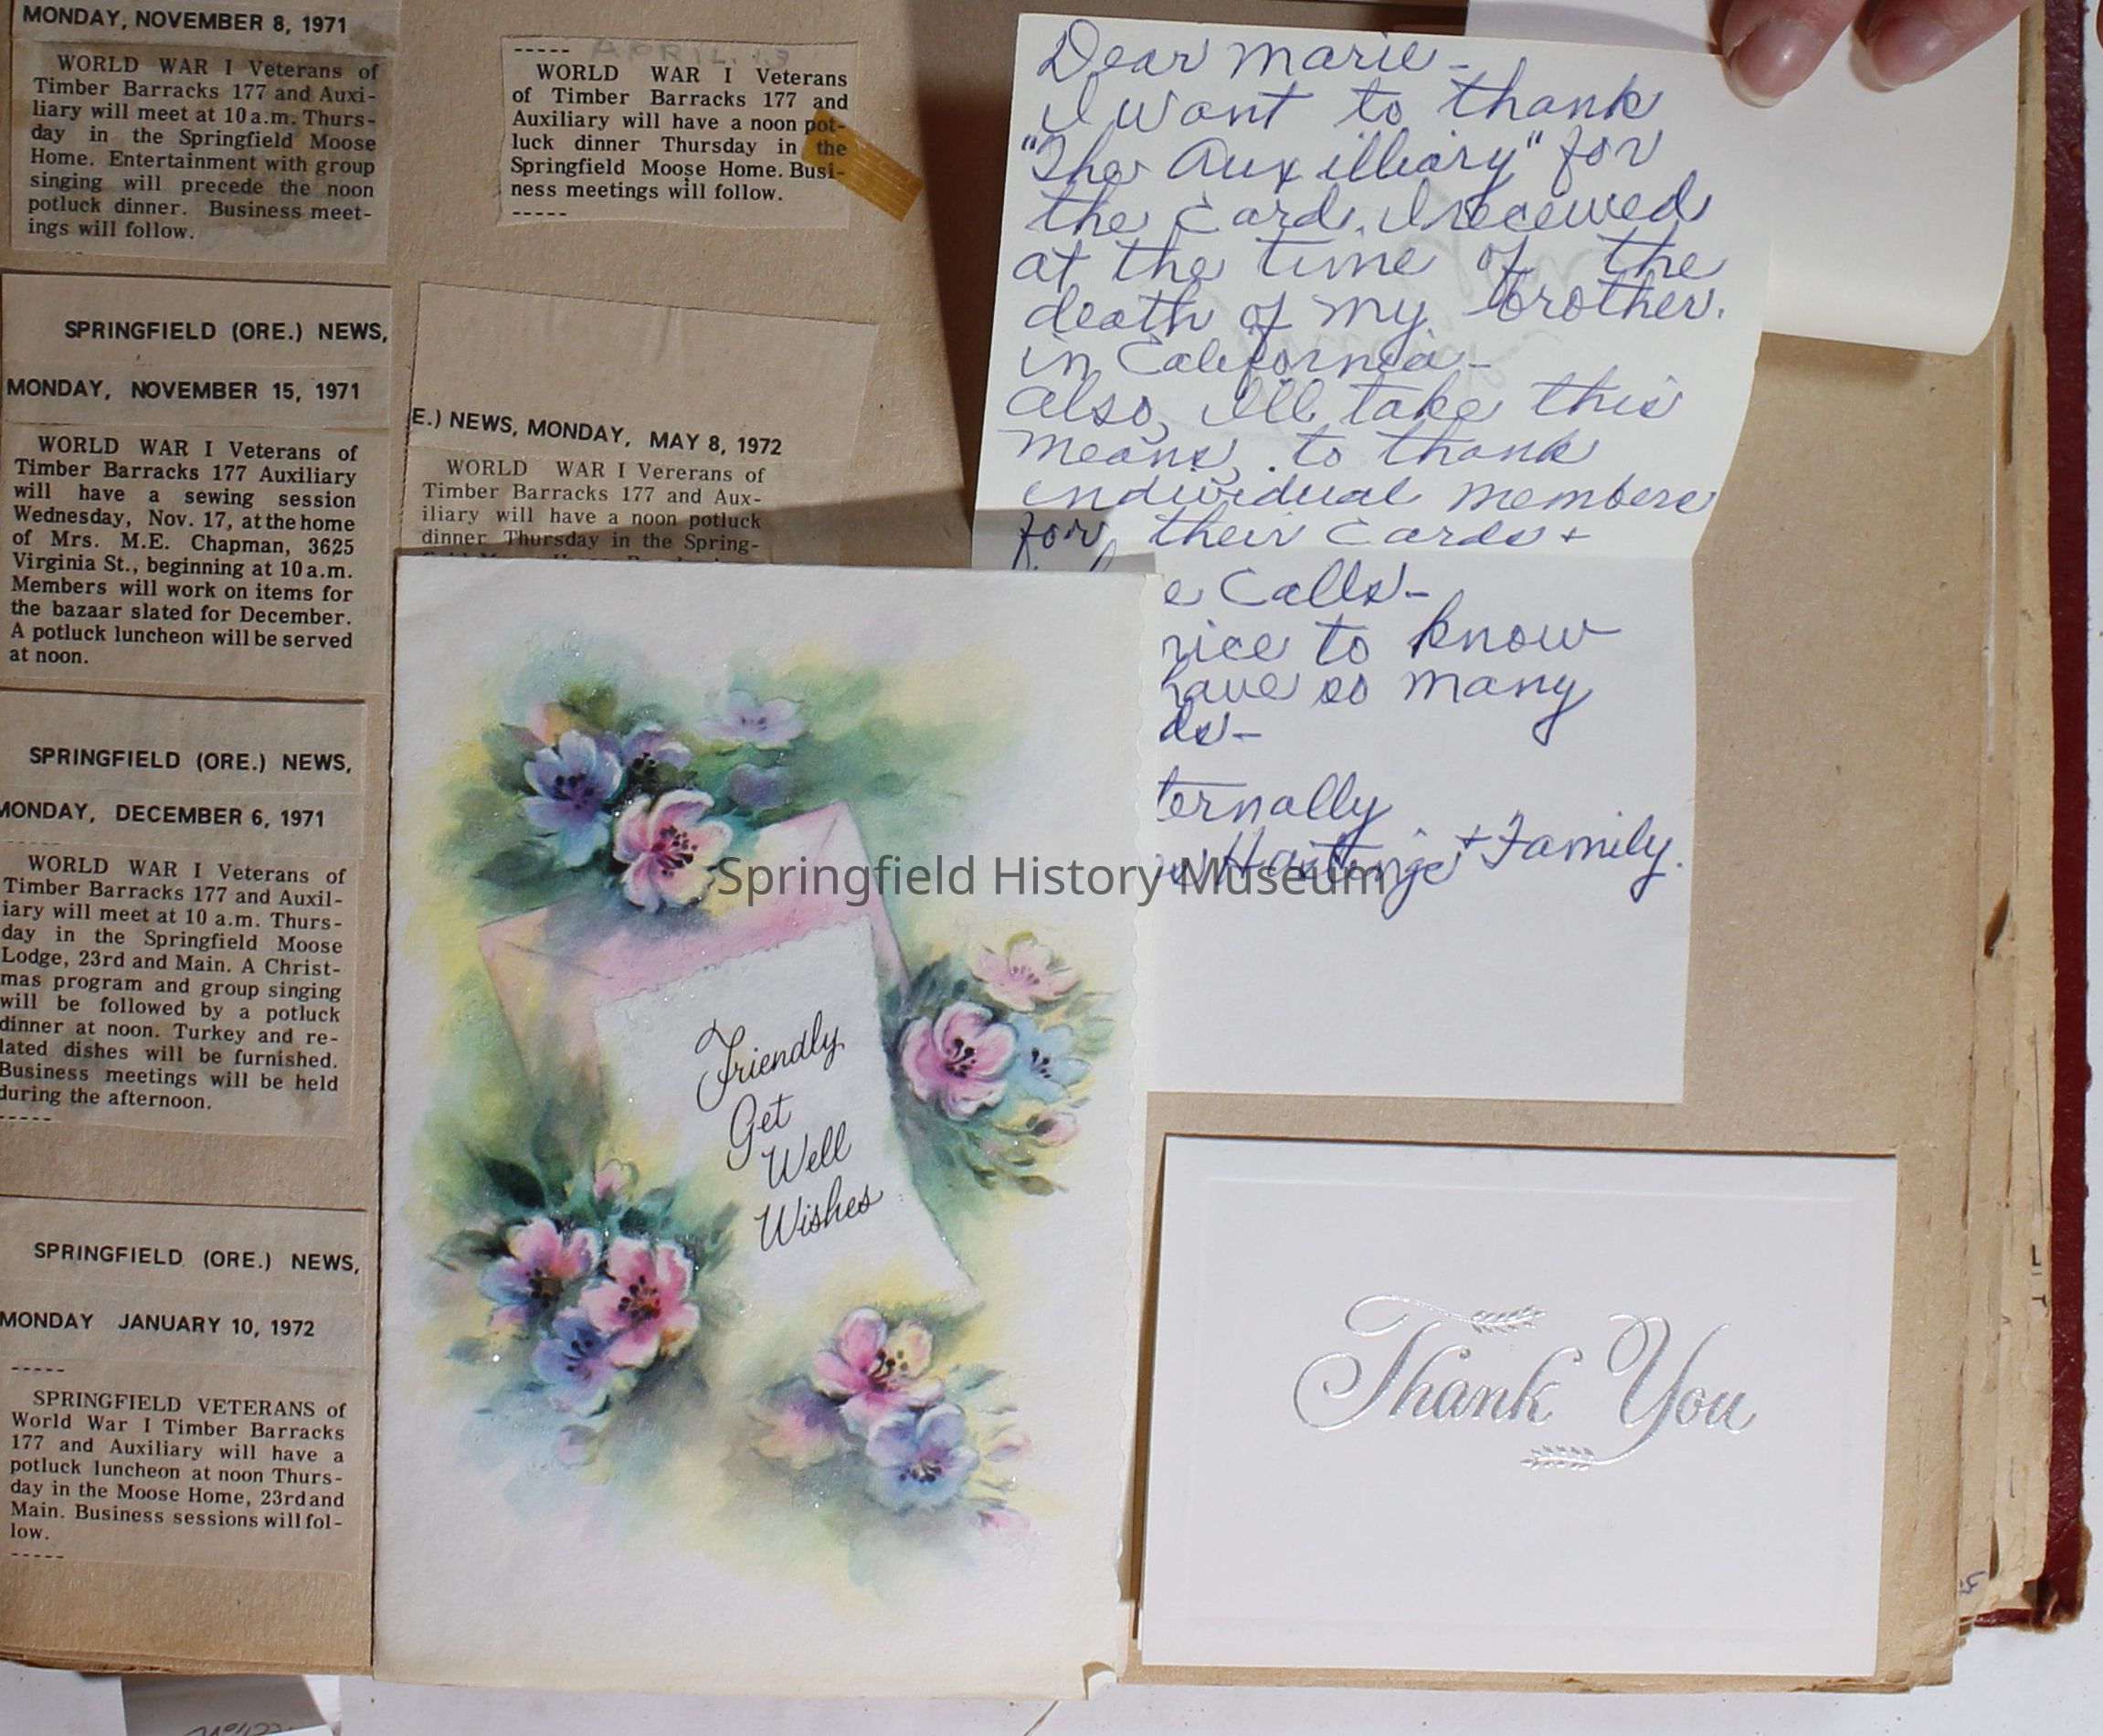 MONDAY, NOVEMBER 8, 1971
WORLD WAR I Veterans of
Timber Barracks 177 and Auxi-
liary will meet at 10 a.m. Thurs-
day in the Springfield Moose
Home. Entertainment with group
singing will precede the noon
potluck dinner. Business meet-
ings will follow.
SPRINGFIELD (ORE.) NEWS,
MONDAY, NOVEMBER 15, 1971
WORLD WAR I Veterans of
Timber Barracks 177 Auxiliary
will have a sewing session
Wednesday, Nov. 17, at the home
of Mrs. M.E. Chapman, 3625
Virginia St., beginning at 10 a.m.
Members will work on items for
the bazaar slated for December.
A potluck luncheon will be served
at noon.
SPRINGFIELD (ORE.) NEWS,
MONDAY, DECEMBER 6, 1971
-----
WORLD WAR I Veterans of
Timber Barracks 177 and Auxil-
iary will meet at 10 a.m. Thurs-
day in the Springfield Moose
Lodge, 23rd and Main. A Christ-
mas program and group singing
will be followed by a potluck
dinner at noon. Turkey and re-
lated dishes will be furnished.
Business meetings will be held
during the afternoon.
-----
SPRINGFIELD (ORE.) NEWS,
MONDAY JANUARY 10, 1972
-----
SPRINGFIELD VETERANS of
World War I Timber Barracks
177 and Auxiliary will have a
potluck luncheon at noon Thurs-
day in the Moose Home, 23rd and
Main. Business sessions will fol-
low.
-----
----- APRIL. 13
WORLD WAR I Veterans
of Timber Barracks 177 and
Auxiliary will have a noon pot-
luck dinner Thursday in the
Springfield Moose Home. Busi-
ness meetings will follow.
-----
E.) NEWS, MONDAY, MAY 8, 1972
WORLD WAR I Vererans of
Timber Barracks 177 and Aux-
iliary will have a noon potluck
dinner Thursday in the Spring-
Dear Marie -
I want to thank
"The Auxilliary" for
the Card. I received
at the time of the
death of my brother.
in California -
Also, I'll take this
means, to thank
individual members
for their Cards +
e Calls -
nice to know
have so many
ds -
ternally
Hastings + Family.
Friendly
Get
Well
Wishes
Thank You
Springfield History Museum